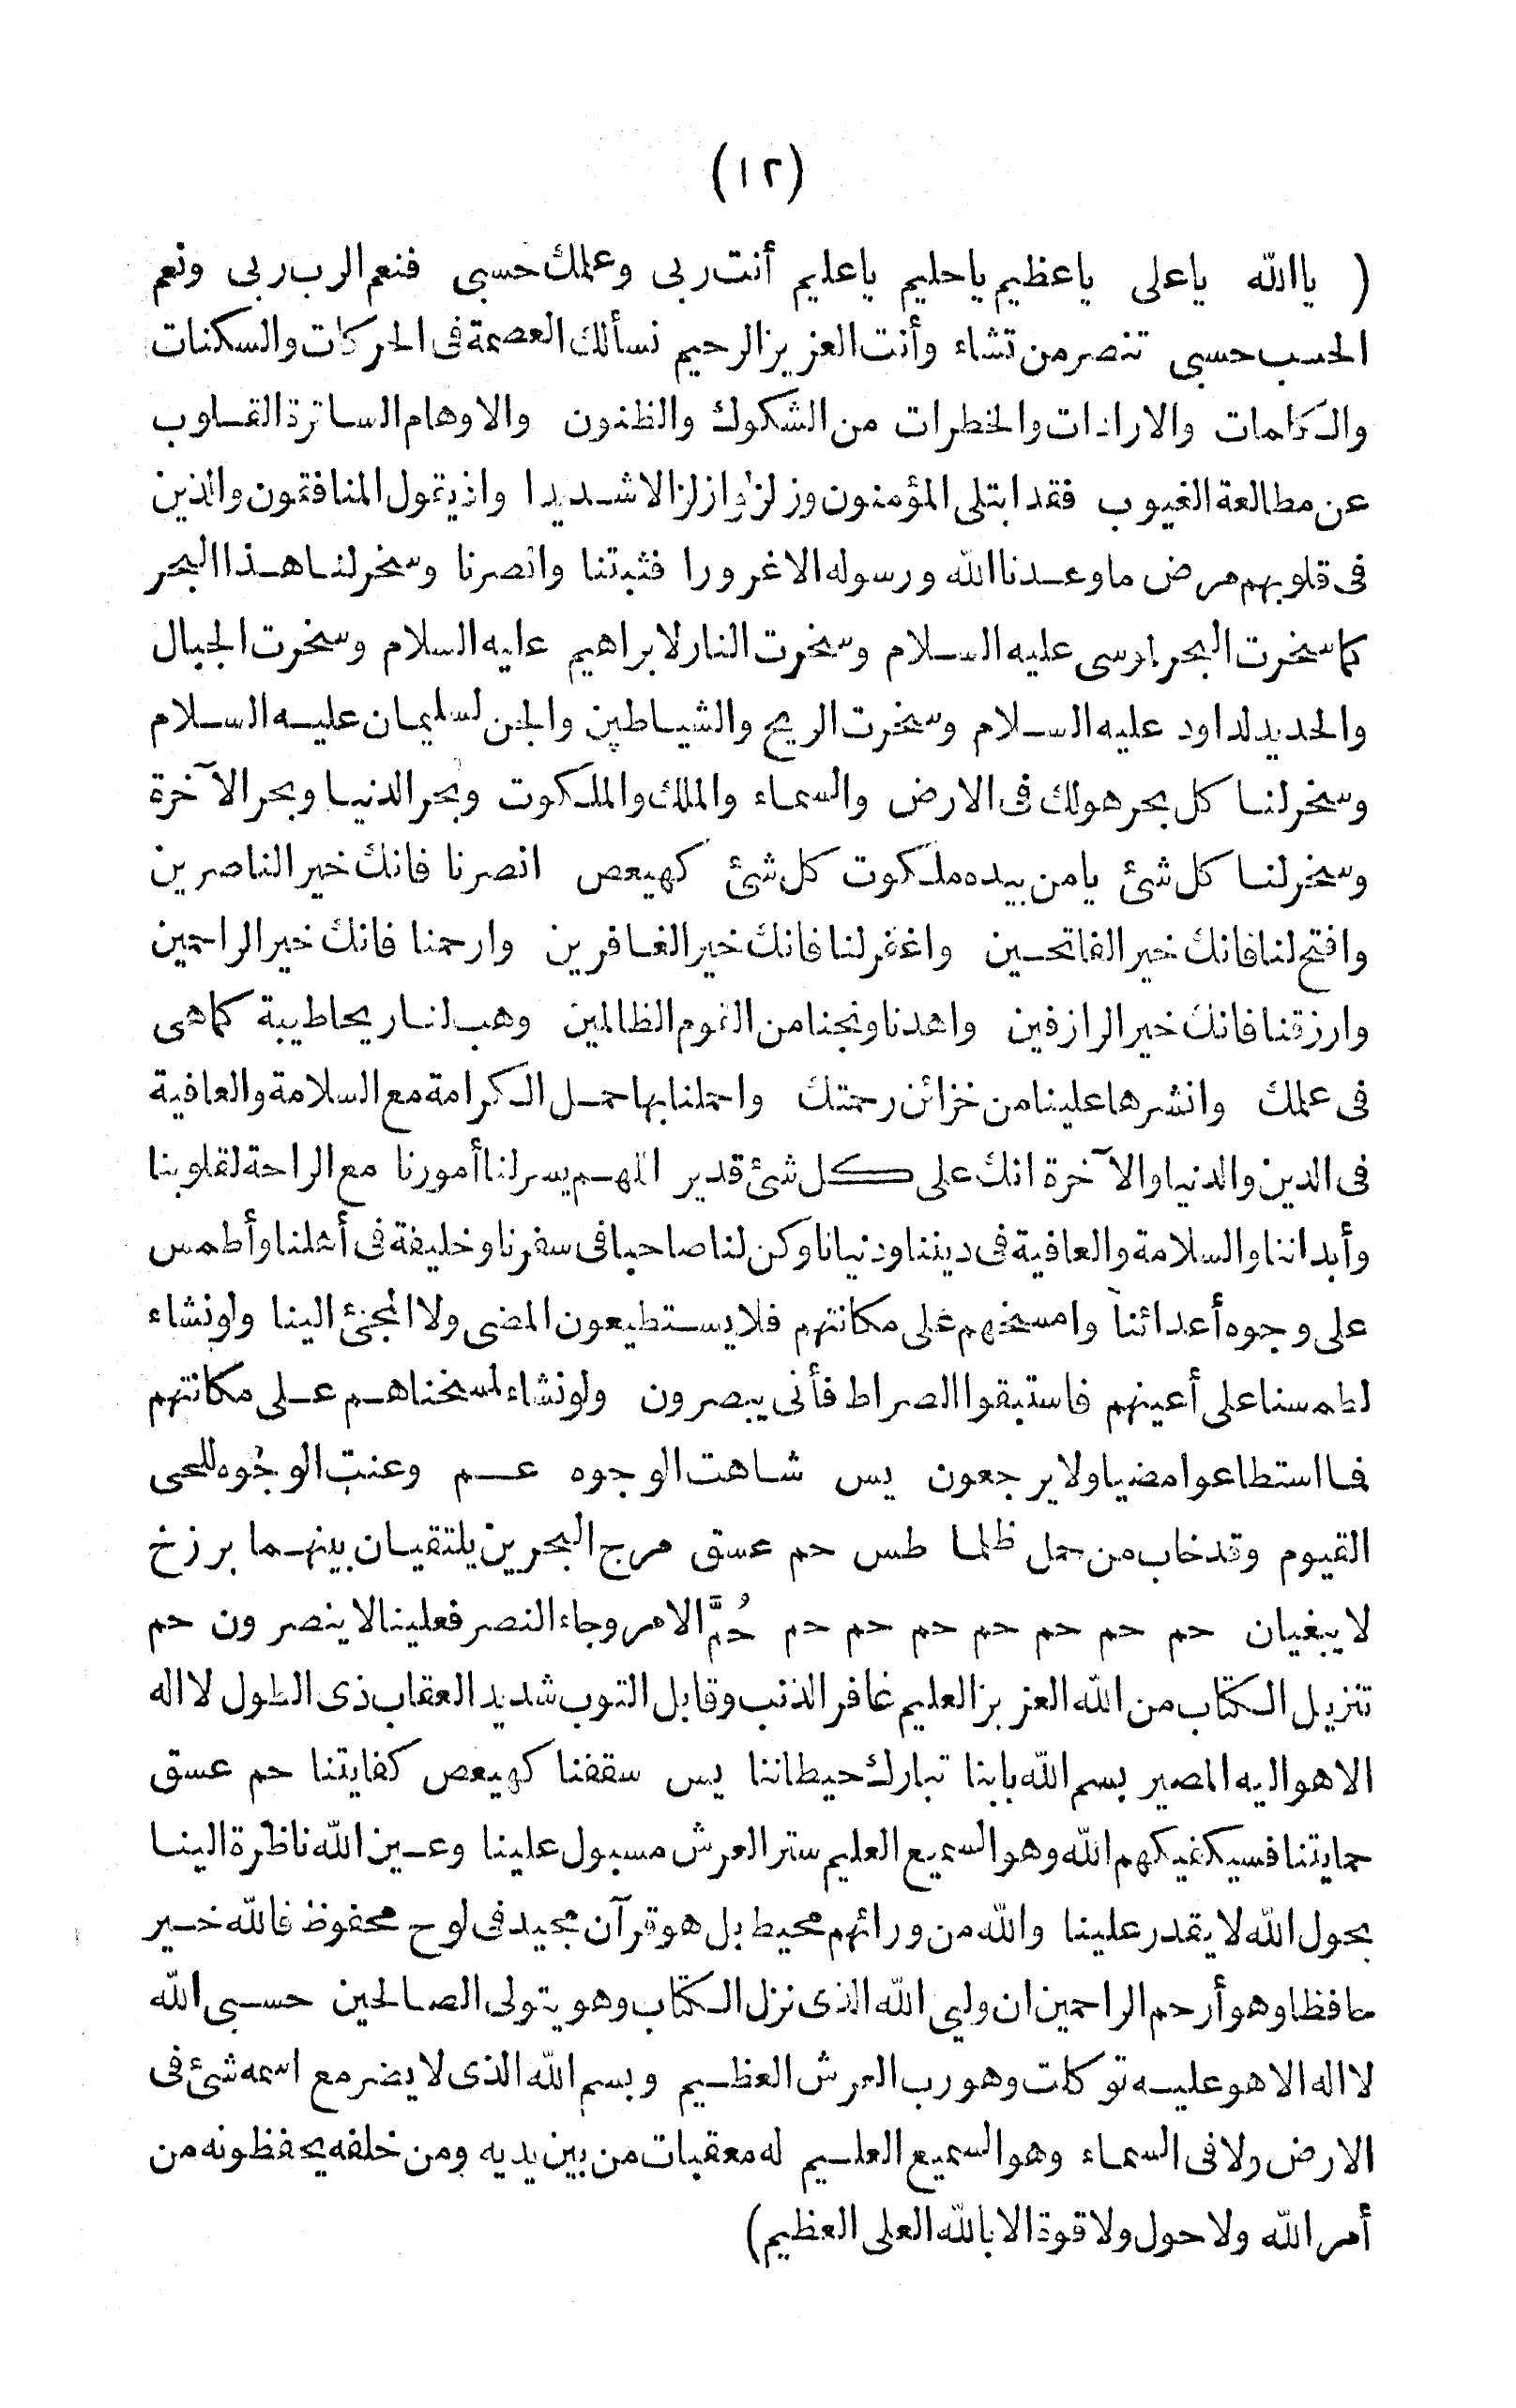 (١٢)
( ياالله ياعلى ياعظيم ياحليم ياعليم أنت ربى وعلمك حسبى فنعم الرب ربى ونعم
الحسب حسبى تنصر من تشاء وأنت العزيز الرحيم نسألك العصمة فى الحركات والسكنات
والكلمات والارادات والخطرات من الشكوك والظنون والاوهام الساترة القلوب
عن مطالعة الغيوب فقد ابتلى المؤمنون وزلزلوا زلزالا شديدا واذ يقول المنافقون والذين
فى قلوبهم مرض ماوعدنا الله ورسوله الا غرورا فثبتنا وانصرنا وسخرلنا هذا البحر
كما سخرت البحر لموسى عليه السلام وسخرت النار لابراهيم عليه السلام وسخرت الجبال
والحديد لداود عليه السلام وسخرت الريح والشياطين والجن لسليمان عليه السلام
وسخرلنا كل بحر هولك فى الارض والسماء والملك والملكوت وبحر الدنيا وبحر الآخرة
وسخرلنا كل شئ يامن بيده ملكوت كل شئ كهيعص انصرنا فانك خير الناصرين
وافتح لنا فانك خير الفاتحين واغفرلنا فانك خير الغافرين وارحمنا فانك خير الراحمين
وارزقنا فانك خير الرازقين واهدنا ونجنا من القوم الظالمين وهب لنا ريحا طيبة كماهى
فى علمك وانشرها علينا من خزائن رحمتك واحملنا بها حمل الكرامة مع السلامة والعافية
فى الدين والدنيا والآخرة انك على كل شئ قدير اللهم يسرلنا أمورنا مع الراحة لقلوبنا
وأبداننا والسلامة والعافية فى ديننا ودنيانا وكن لنا صاحبا فى سفرنا وخليفة فى أهلنا وأطمس
على وجوه أعدائنا وامسخهم على مكانتهم فلايستطيعون المضى ولا المجئ الينا ولونشاء
لطمسنا على أعينهم فاستبقوا الصراط فأنى يبصرون ولونشاء لمسخناهم على مكانتهم
فما استطاعوا مضيا ولا يرجعون يس شاهت الوجوه عم وعنت الوجُوه للحى
القيوم وقد خاب من حمل ظلما طس حم عسق مرج البحرين يلتقيان بينهما برزخ
لا يبغيان حم حم حم حم حم حم حم حُمَّ الامر وجاء النصر فعلينا لاينصرون حم
تنزيل الكتاب من الله العزيز العليم غافر الذنب وقابل التوب شديد العقاب ذى الطول لا اله
الا هو اليه المصير بسم الله بابنا تبارك حيطاننا يس سقفنا كهيعص كفايتنا حم عسق
حمايتنا فسيكفيكهم الله وهو السميع العليم ستر العرش مسبول علينا وعين الله ناظرة الينا
بحول الله لا يقدر علينا والله من ورائهم محيط بل هو قرآن مجيد فى لوح محفوظ فالله خير
حافظا وهو أرحم الراحمين ان وليى الله الذى نزل الكتاب وهو يتولى الصالحين حسبى الله
لا اله الا هو عليه توكلت وهو رب العرش العظيم وبسم الله الذى لا يضر مع اسمه شئ فى
الارض ولا فى السماء وهو السميع العليم له معقبات من بين يديه ومن خلفه يحفظونه من
أمر الله ولا حول ولا قوة الا بالله العلى العظيم)